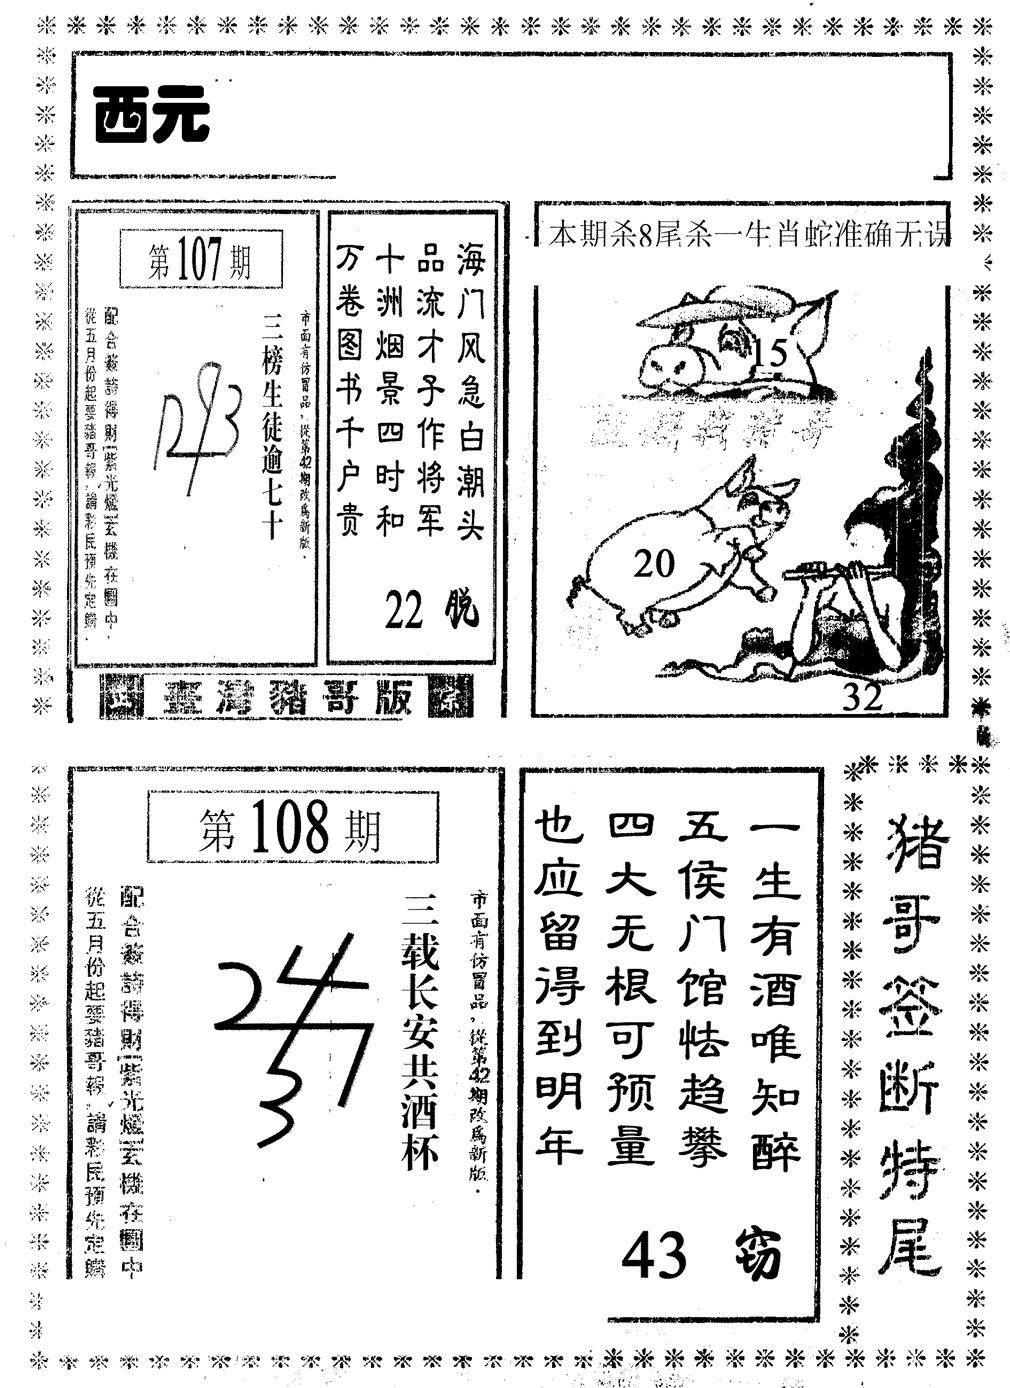 西元
第107期
市面有仿冒品，從第42期改為新版．
三榜生徒逾七十
配合簽詩得財【紫光燈】玄機在圖中．
從五月份起要豬哥報，請彩民預先定購．
海门风急白潮头
品流才子作将军
十洲烟景四时和
万卷图书千户贵
22 脱
臺灣豬哥版
本期杀8尾杀一生肖蛇准确无误
15
20
32
第108期
市面有仿冒品，從第42期改為新版．
三载长安共酒杯
配合簽詩得財【紫光燈】玄機在圖中
從五月份起要豬哥報，請彩民預先定購
一生有酒唯知醉
五侯门馆怯趋攀
四大无根可预量
也应留得到明年
43 窃
猪哥签断特尾